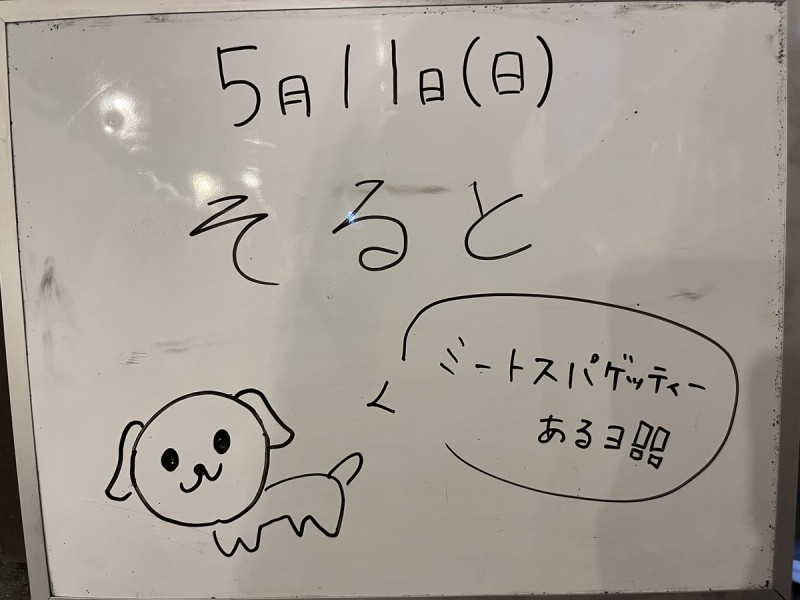 5月11日(日)
そると
ミートスパゲッティー
あるヨ!!